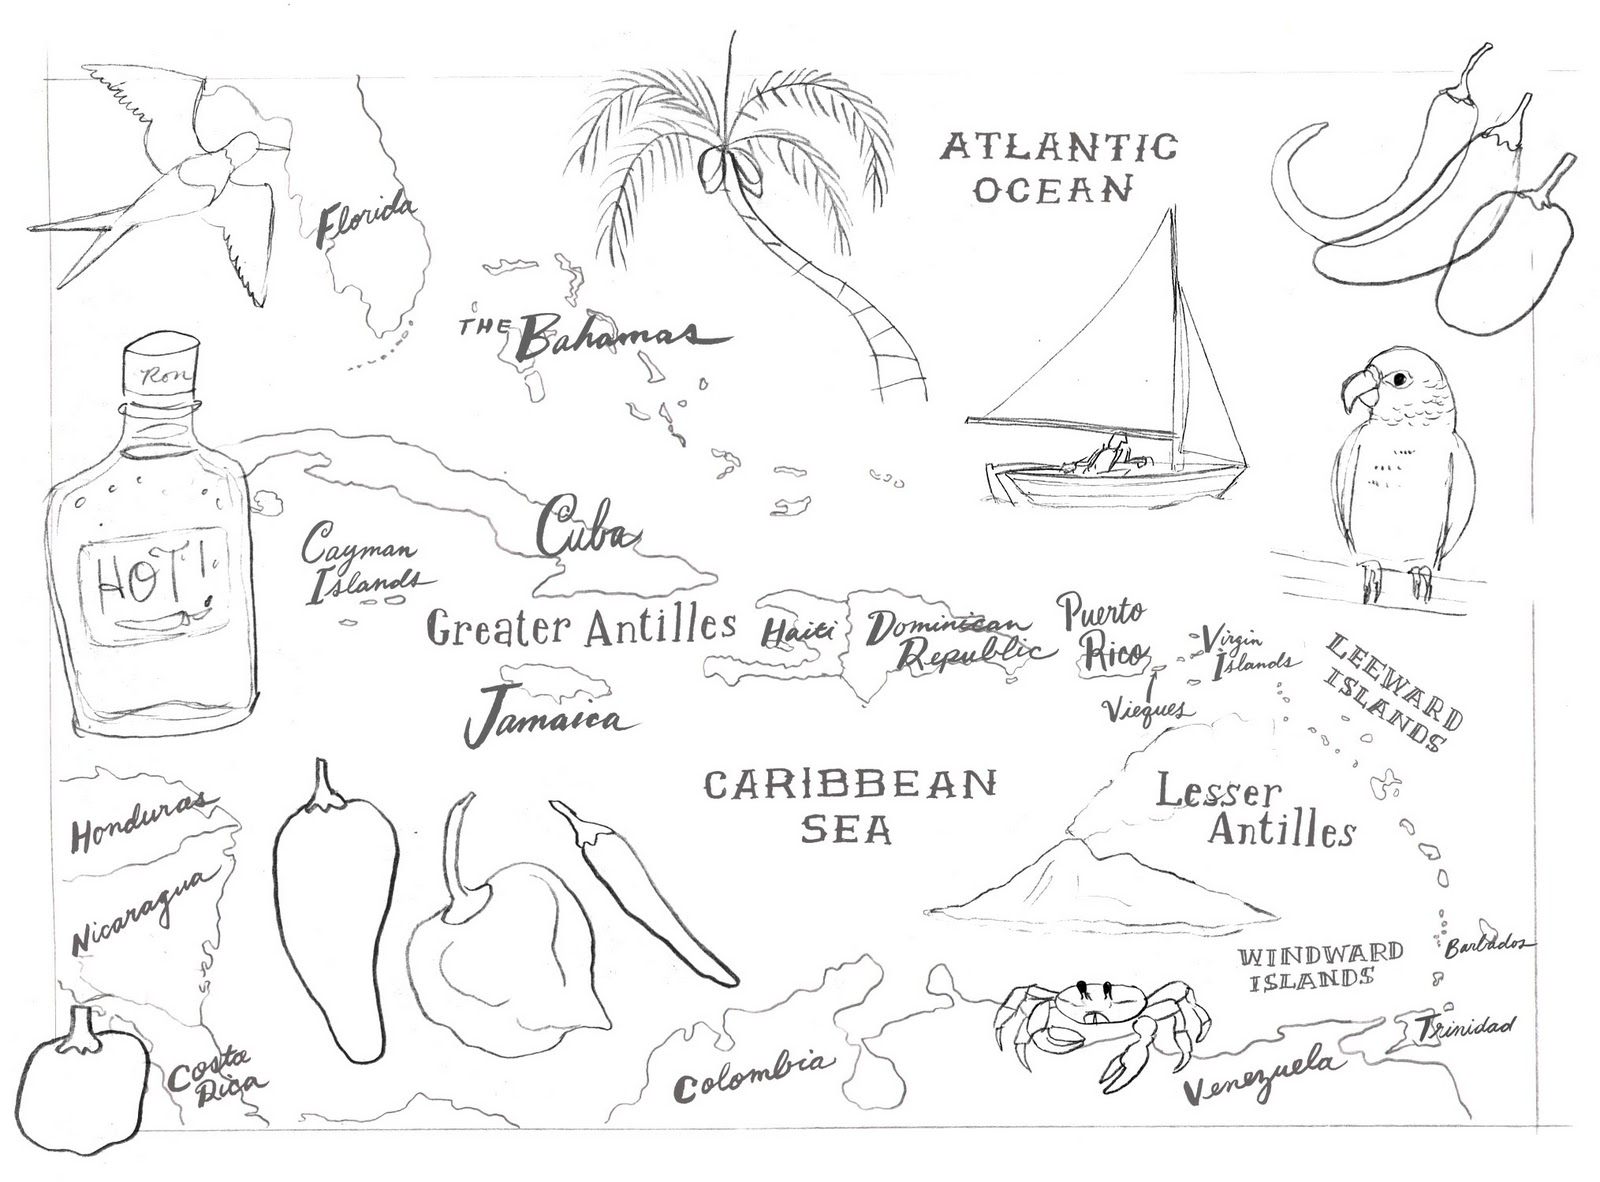 ATLANTIC
OCEAN
Florida
THE Bahamas
Ron
HOT!
Cuba
Cayman
Islands
Greater Antilles
Haiti
Dominican
Republic
Puerto
Rico
Virgin
Islands
Vieques
LEEWARD
ISLANDS
Jamaica
CARIBBEAN
SEA
Lesser
Antilles
Honduras
Nicaragua
WINDWARD
ISLANDS
Barbados
Trinidad
Costa
Rica
Colombia
Venezuela